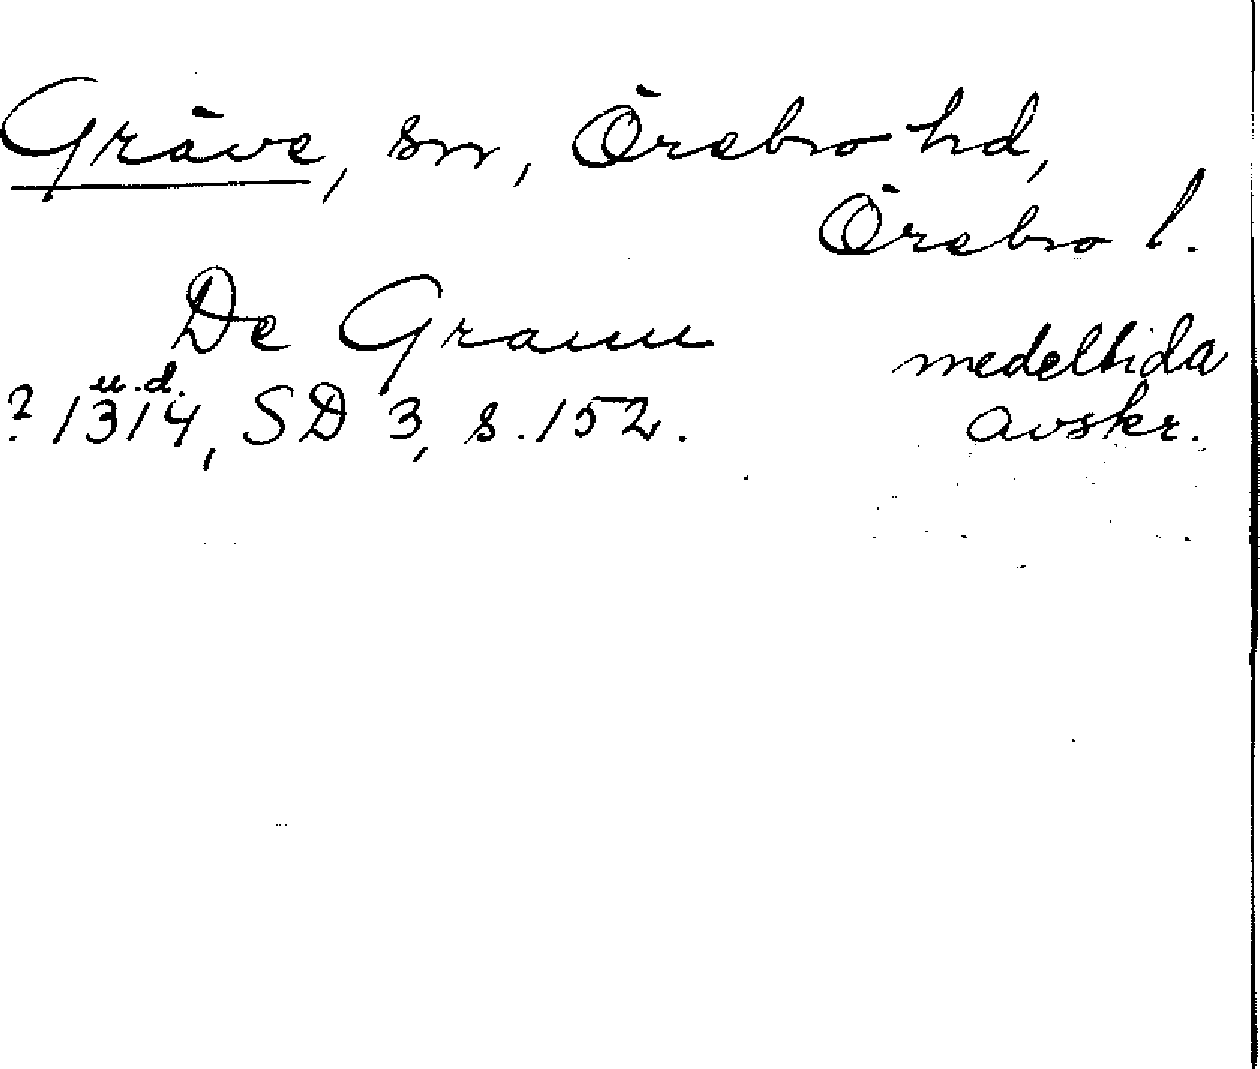 Gräve, sn, Örebro hd,
Örebro l.
De Grauu
medeltida
u.d.
? 1314, SD 3, s. 152.
avskr.